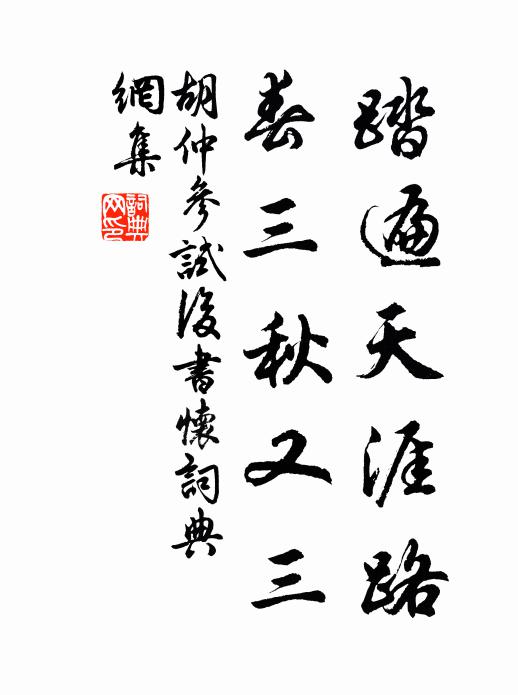 踏遍天涯路
春三秋又三
胡仲參試後書懷詞典
網集
詞典
网印